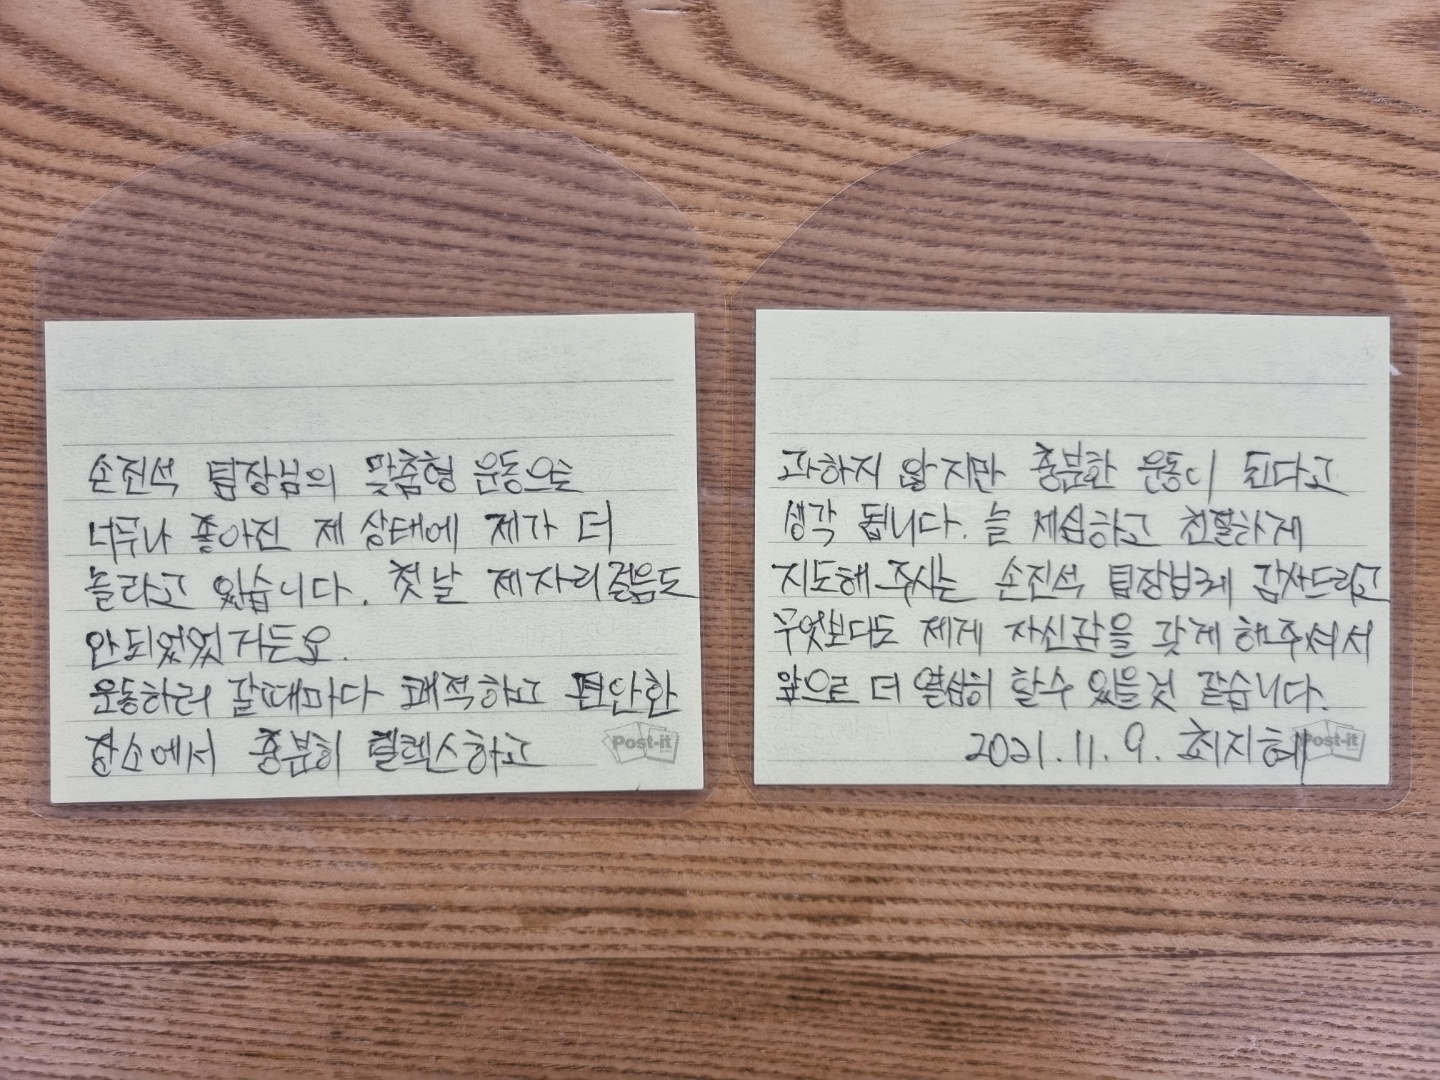 손진석 팀장님의 맞춤형 운동으로
너무나 좋아진 제 상태에 제가 더
놀라고 있습니다. 첫날 제자리걸음도
안되었었거든요.
운동하러 갈때마다 쾌적하고 편안한
장소에서 충분히 릴렉스하고
Post-it
과하지 않지만 충분한 운동이 된다고
생각 됩니다. 늘 세심하고 친절하게
지도해 주시는 손진석 팀장님께 감사드리고
무엇보다도 제게 자신감을 갖게 해주셔서
앞으로 더 열심히 할수 있을것 같습니다.
2021. 11. 9. 최지혜
Post-it